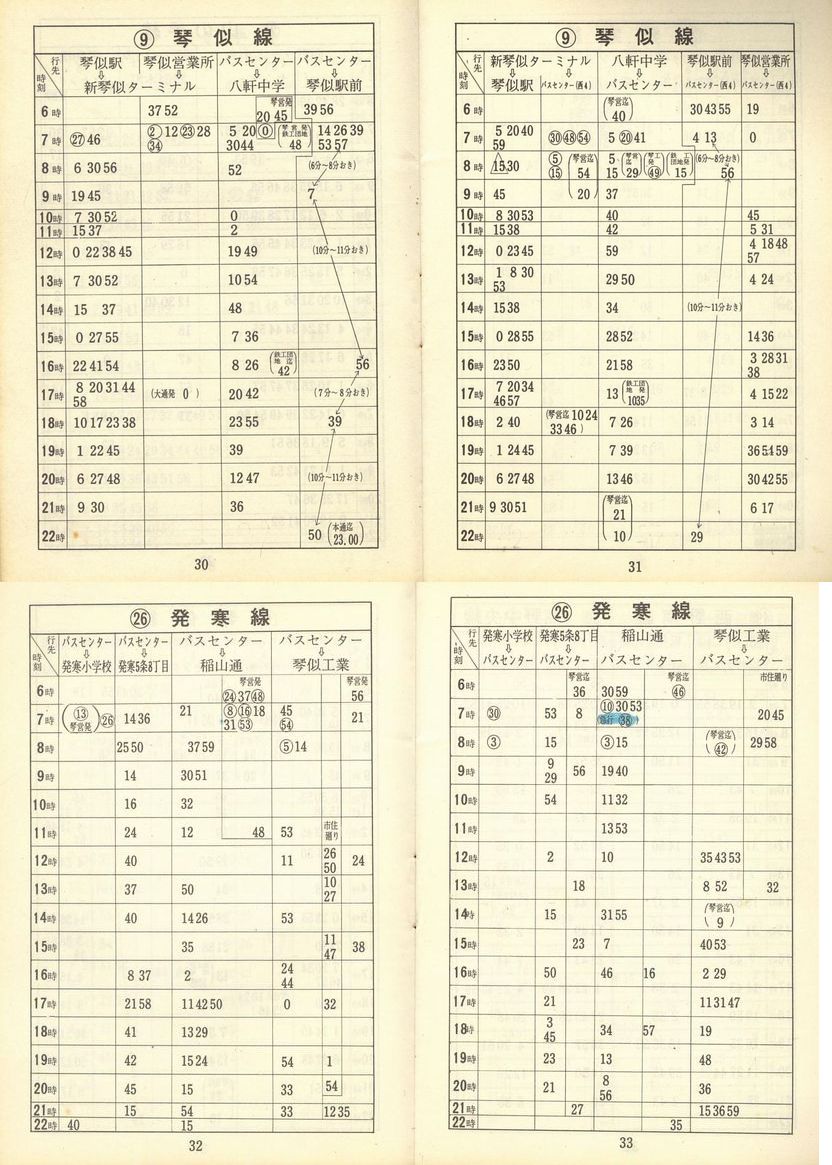 ⑨ 琴似線
行先
時刻
琴似駅 ⇩ 新琴似ターミナル
琴似営業所 ⇩ 新琴似ターミナル
バスセンター ⇩ 八軒中学
バスセンター ⇩ 琴似駅前
6時 37 52 琴営発 20 45 39 56
7時 ㉗ 46 ② 12 ㉓ 28 ㉞ 5 20 ⓪ 30 44 (琴営発 鉄工団地 48) 14 26 39 53 57
8時 6 30 56 52 (6分~8分おき)
9時 19 45 7
10時 7 30 52 0
11時 15 37 2
12時 0 22 38 45 19 49 (10分~11分おき)
13時 7 30 52 10 54
14時 15 37 48
15時 0 27 55 7 36
16時 22 41 54 8 26 (鉄工団地迄 42) 56
17時 8 20 31 44 58 (大通発 0) 20 42 (7分~8分おき)
18時 10 17 23 38 23 55 39
19時 1 22 45 39
20時 6 27 48 12 47 (10分~11分おき)
21時 9 30 36
22時 50 (本通迄 23.00)
30
⑨ 琴似線
行先
時刻
新琴似ターミナル ⇩ 琴似駅
新琴似ターミナル ⇩ バスセンター(西4)
八軒中学 ⇩ バスセンター
琴似駅前 ⇩ バスセンター(西4)
琴似営業所 ⇩ バスセンター(西4)
6時 (琴営迄 40) 30 43 55 19
7時 5 20 40 59 ㉚ ㊽ 54 5 ⑳ 41 4 13 0
8時 15 30 ⑤ ⑮ (琴営迄 54 5 15 (琴営迄 29) (琴工発 ㊾) (鉄工団地発 15) (6分~8分おき) 56
9時 45 20) 37
10時 8 30 53 40 45
11時 15 38 42 5 31
12時 0 23 45 59 4 18 48 57
13時 1 8 30 53 29 50 4 24
14時 15 38 34 (10分~11分おき)
15時 0 28 55 28 52 14 36
16時 23 50 21 58 3 28 31 38
17時 7 20 34 46 57 13 (鉄工団地 10 35) 4 15 22
18時 2 40 (琴営迄 10 24 33 46) 7 26 3 14
19時 1 24 45 7 39 36 51 59
20時 6 27 48 13 46 30 42 55
21時 9 30 51 (琴営迄 21 6 17
22時 10) 29
31
㉖ 発寒線
行先
時刻
バスセンター ⇩ 発寒小学校
バスセンター ⇩ 発寒5条8丁目
バスセンター ⇩ 稲山通
バスセンター ⇩ 琴似工業
6時 琴営発 ㉔ 37 ㊽ 琴営発 56
7時 (⑬ 琴営発) ㉖ 14 36 21 ⑧ ⑯ 18 31 53 45 54 21
8時 25 50 37 59 ⑤ 14
9時 14 30 51
10時 16 32
11時 24 12 48 53 市住廻り
12時 40 11 26 50 24
13時 37 50 10 27
14時 40 14 26 53
15時 35 11 47 38
16時 8 37 2 24 44
17時 21 58 11 42 50 0 32
18時 41 13 29
19時 42 15 24 54 1
20時 45 15 33 54
21時 15 54 33 12 35
22時 40 15
32
㉖ 発寒線
行先
時刻
発寒小学校 ⇩ バスセンター
発寒5条8丁目 ⇩ バスセンター
稲山通 ⇩ バスセンター
琴似工業 ⇩ バスセンター
6時 琴営迄 36 30 59 琴営迄 ㊻ 市住廻り
7時 ㉚ 53 8 ⑩ 30 53 ㊳ 20 45
8時 ③ 15 ③ 15 (琴営迄 ㊷) 29 58
9時 9 29 56 19 40
10時 54 11 32
11時 13 53
12時 2 10 35 43 53
13時 18 8 52 32
14時 15 31 55 (琴営迄 9)
15時 23 7 40 53
16時 50 46 16 2 29
17時 21 11 31 47
18時 3 45 34 57 19
19時 23 13 48
20時 21 8 56 36
21時 27 15 36 59
22時 35
33